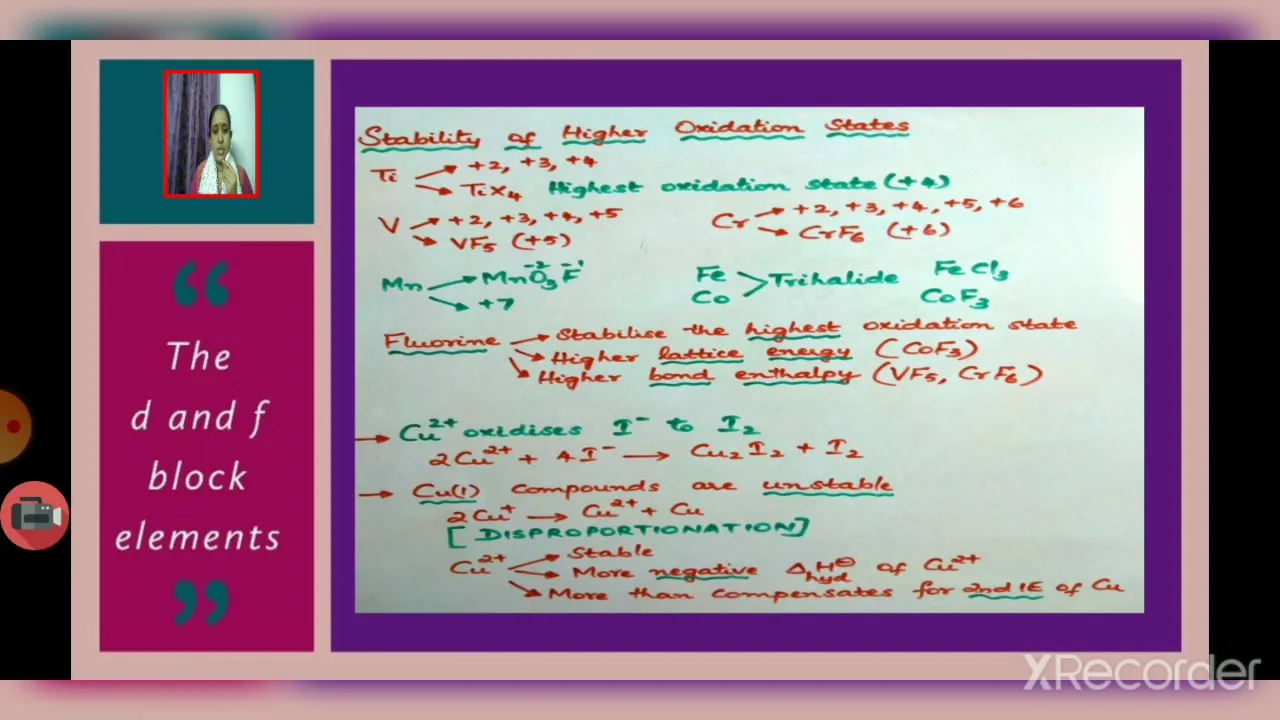 “
The
d and f
block
elements
”
Stability of Higher Oxidation States
Ti → +2, +3, +4
→ TiX₄ Highest oxidation state (+4)
V → +2, +3, +4, +5
→ VF₅ (+5)
Cr → +2, +3, +4, +5, +6
→ CrF₆ (+6)
Mn → MnO₃⁻²F⁻¹
→ +7
Fe
Co
> Trihalide
FeCl₃
CoF₃
Fluorine → Stabilise the highest oxidation state
→ Higher lattice energy (CoF₃)
→ Higher bond enthalpy (VF₅, CrF₆)
→ Cu²⁺ oxidises I⁻ to I₂
2Cu²⁺ + 4I⁻ → Cu₂I₂ + I₂
→ Cu(I) compounds are unstable
2Cu⁺ → Cu²⁺ + Cu
[DISPROPORTIONATION]
Cu²⁺ → Stable
→ More negative Δhyd H⊖ of Cu²⁺
→ More than compensates for 2nd IE of Cu
XRecorder